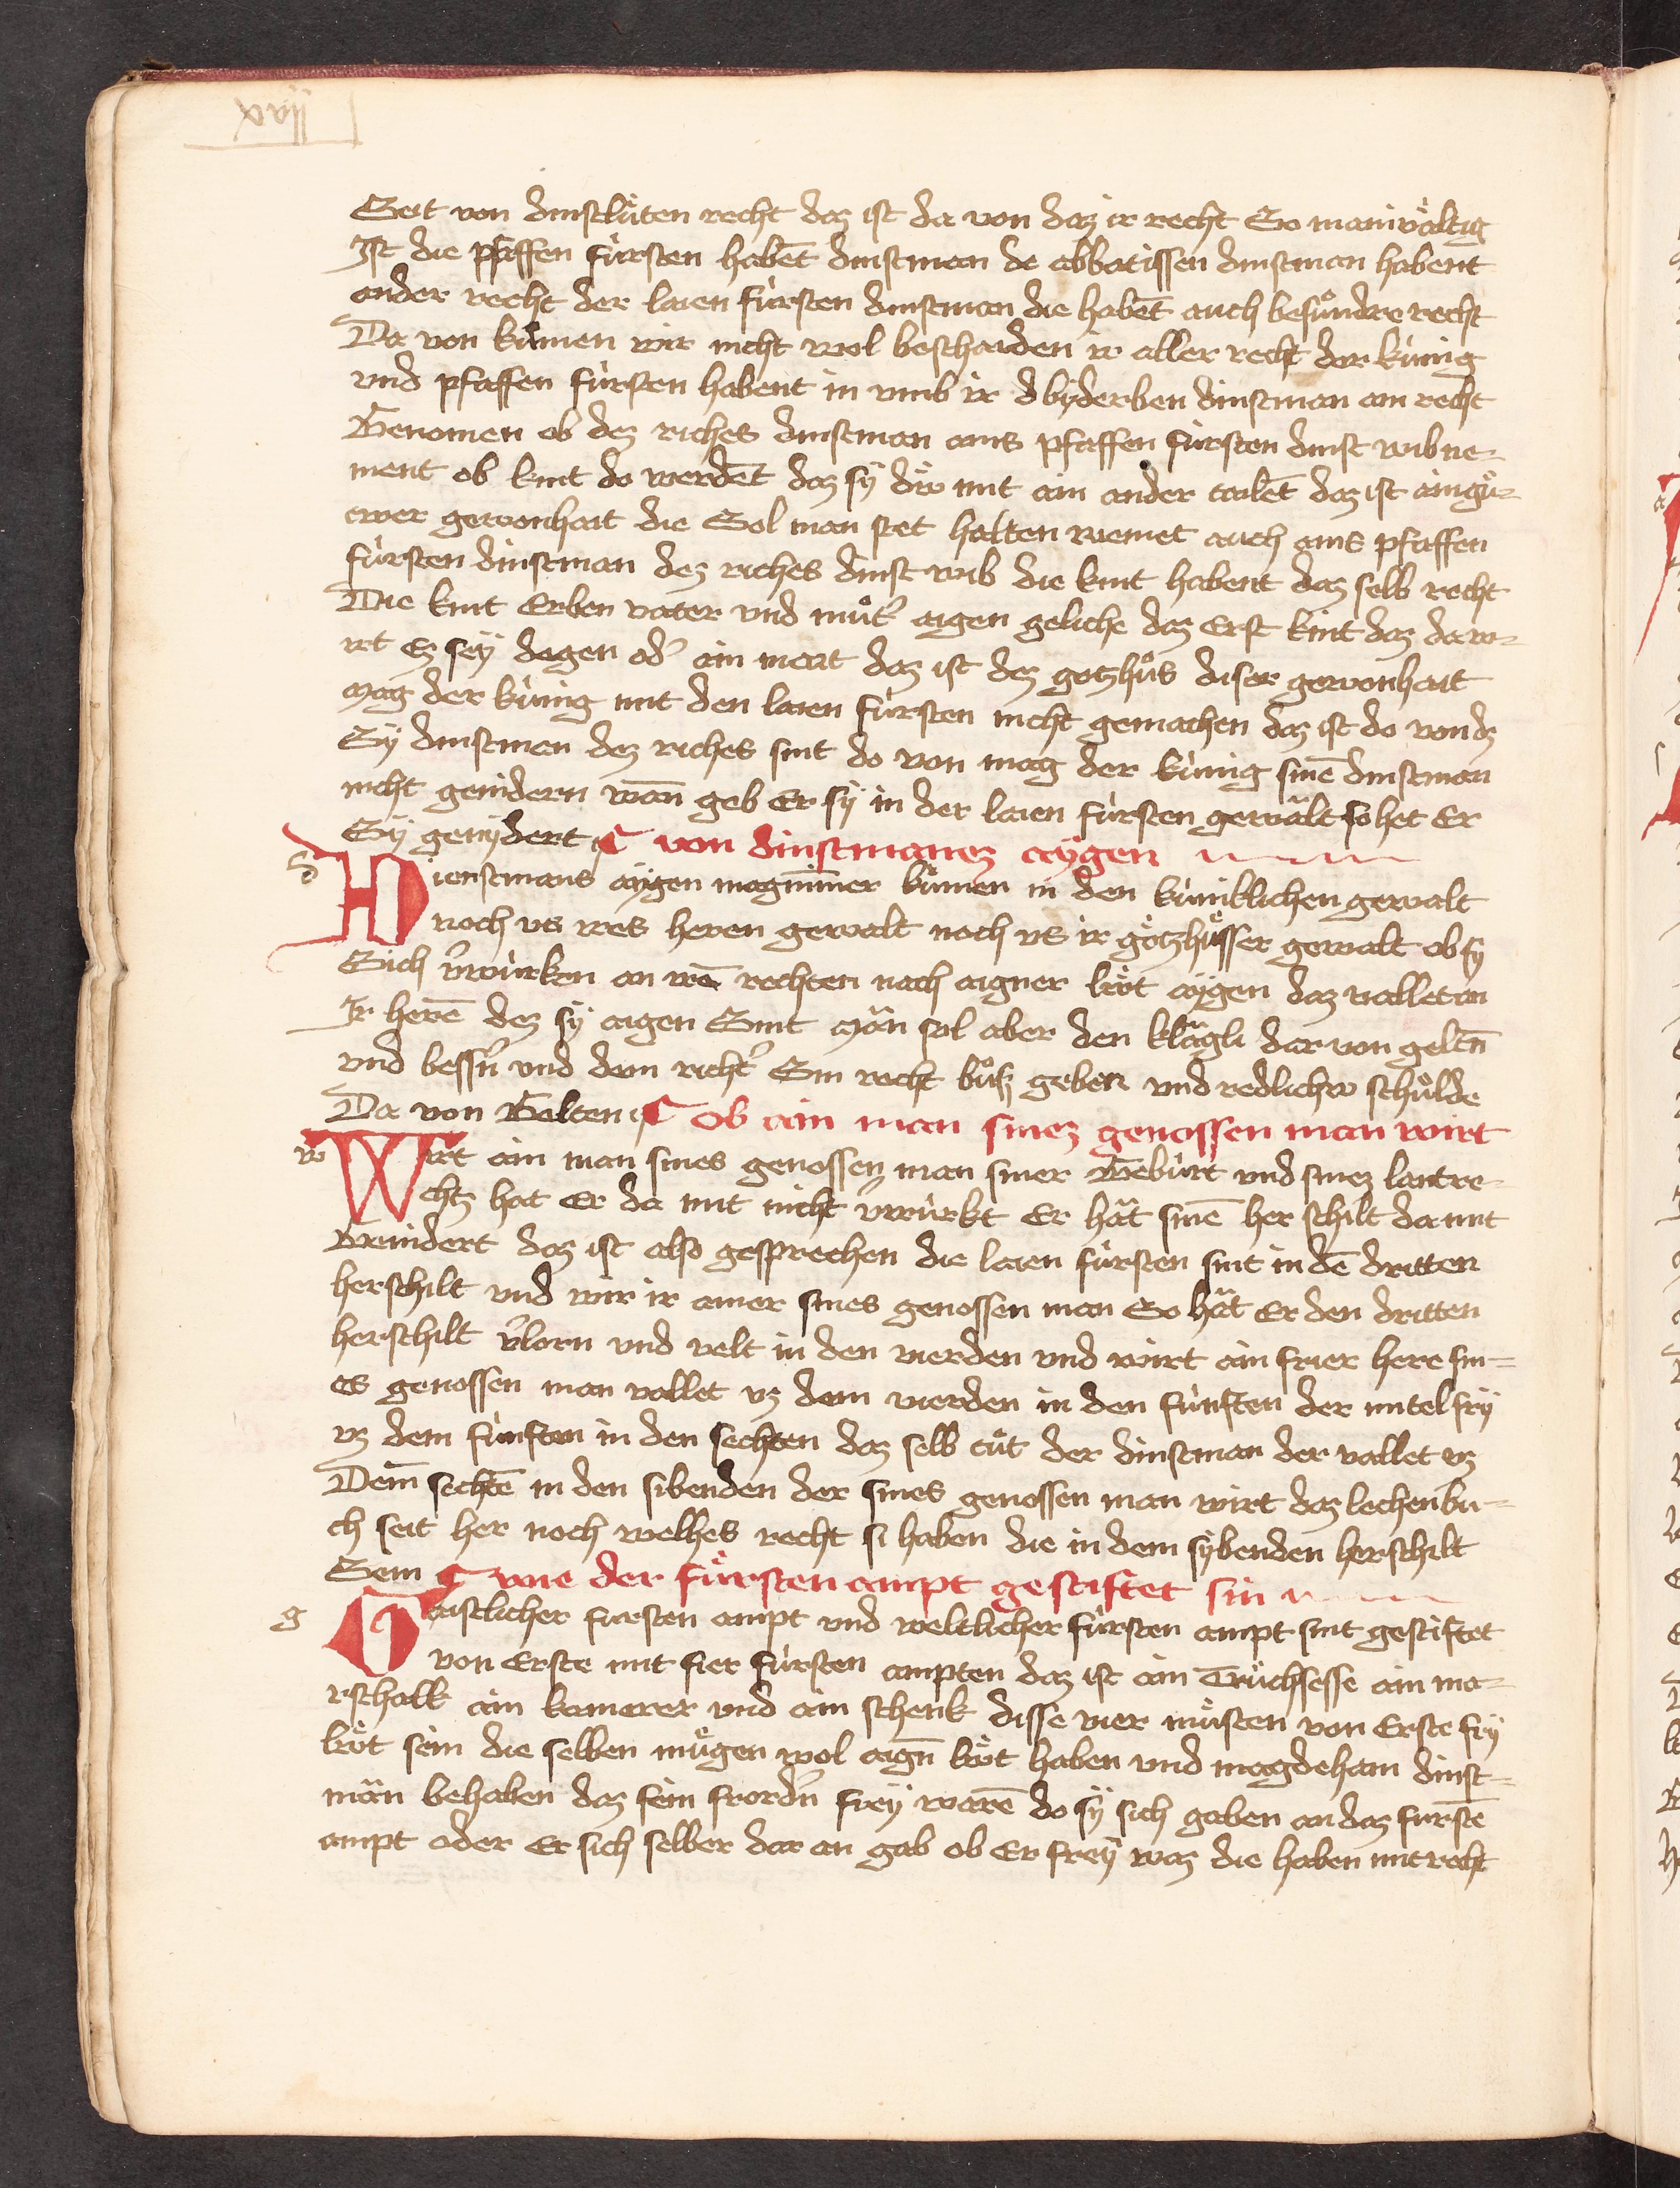 Seit von dinstlüten recht daz ist da von daz ir recht So manivältig
Ist die pfaffen fürsten habēt dinstman de abbatissen dinstman habent
ander recht der laien fürsten dinstman die habēt auch besundre recht
Da von künnen wir nicht wol beschaiden ir aller recht der künig
vnd pfaffen fürsten habent in vmb ir d byderben dinstman ain recht
Genomen ob dez riches dinstman ains pfaffen fürsten dinst wib ne-
ment ob kint do werdēt daz sÿ dü mit ain ander tailēt daz ist ain gü-
ter gewonhait die Sol man stet halten niemet auch ains pfaffen
fürsten dinstman dez riches dinst wib die kint habent daz selb recht
Die kint Erben vater vnd mut' aigen geliche daz Erst kint daz da w-
irt Ez sÿ degen od' ain meit daz ist dez gotzhus diser gewonhait
mag der künig mit den laien fürsten nicht gemachen daz ist do von dz
Sÿ dinstman dez riches sint do von mag der künig sinē dinstman
nicht genidern wan̄ geb Er sÿ in der laien fürsten gewalt so het Er
Sÿ genÿdert ¶ von dinstmanez aÿgen
d
Dienstmans aÿgen mag nimmer kumen in den küniklichen gewalt
noch us irs heren gewalt noch us ir gotzhüsser gewalt ob sy
Sich v'würken an irē rechten nach aigner lüt aÿgen daz vallet an
Ir herē dez sÿ aigen Sint Man sol aber den klägli dar von geltn̄
vnd bessn̄ vnd dem richt' Sin recht buſz geben vnd redlicher schulde
Da von Gelten ¶ ob ain man sinez genossen man wirt
w
Wirt ain man sines genossen man siner Gebürt vnd sinez lantre-
chtz hat Er da mit nicht v'würkt Er hät sinē her schilt da mit
Genidert daz ist also gesprechen die laien fürsten sint in dē dritten
herschilt vnd wir ir ainer sines genossen man So hät Er den dritten
herschilt v'lorn vnd velt in den vierden vnd wirt ain frier here sin-
es genossen man vallet vz dem vierden in den fünften der mitel frÿ
vz dem fünften in den sechten daz selb tüt der dinstman der vallet vz
Dem sechtē in den sibenden der sines genossen man wirt daz lechenbu-
ch seit her noch welhes recht si haben die in dem sÿbenden herschilt
Sein ¶ wie der fürsten ampt gestiftet sin
g
Gaistlicher fursten ampt vnd weltlicher fürsten ampt sint gestiftet
von Erste mit fier fürsten ampten daz ist ain Truchsesse ain ma-
rschalk ain kamerer vnd ain schenk disse vier müsten von Erste frÿ
lüt sein die selben mügen wol aign̄ lüt haben vnd mag dehain dinst-
män behaben daz sein frordn̄ freÿ warē do sÿ sich gaben an daz furstē
ampt oder Er sich selber dar an gab ob Er freÿ waz die haben mit recht